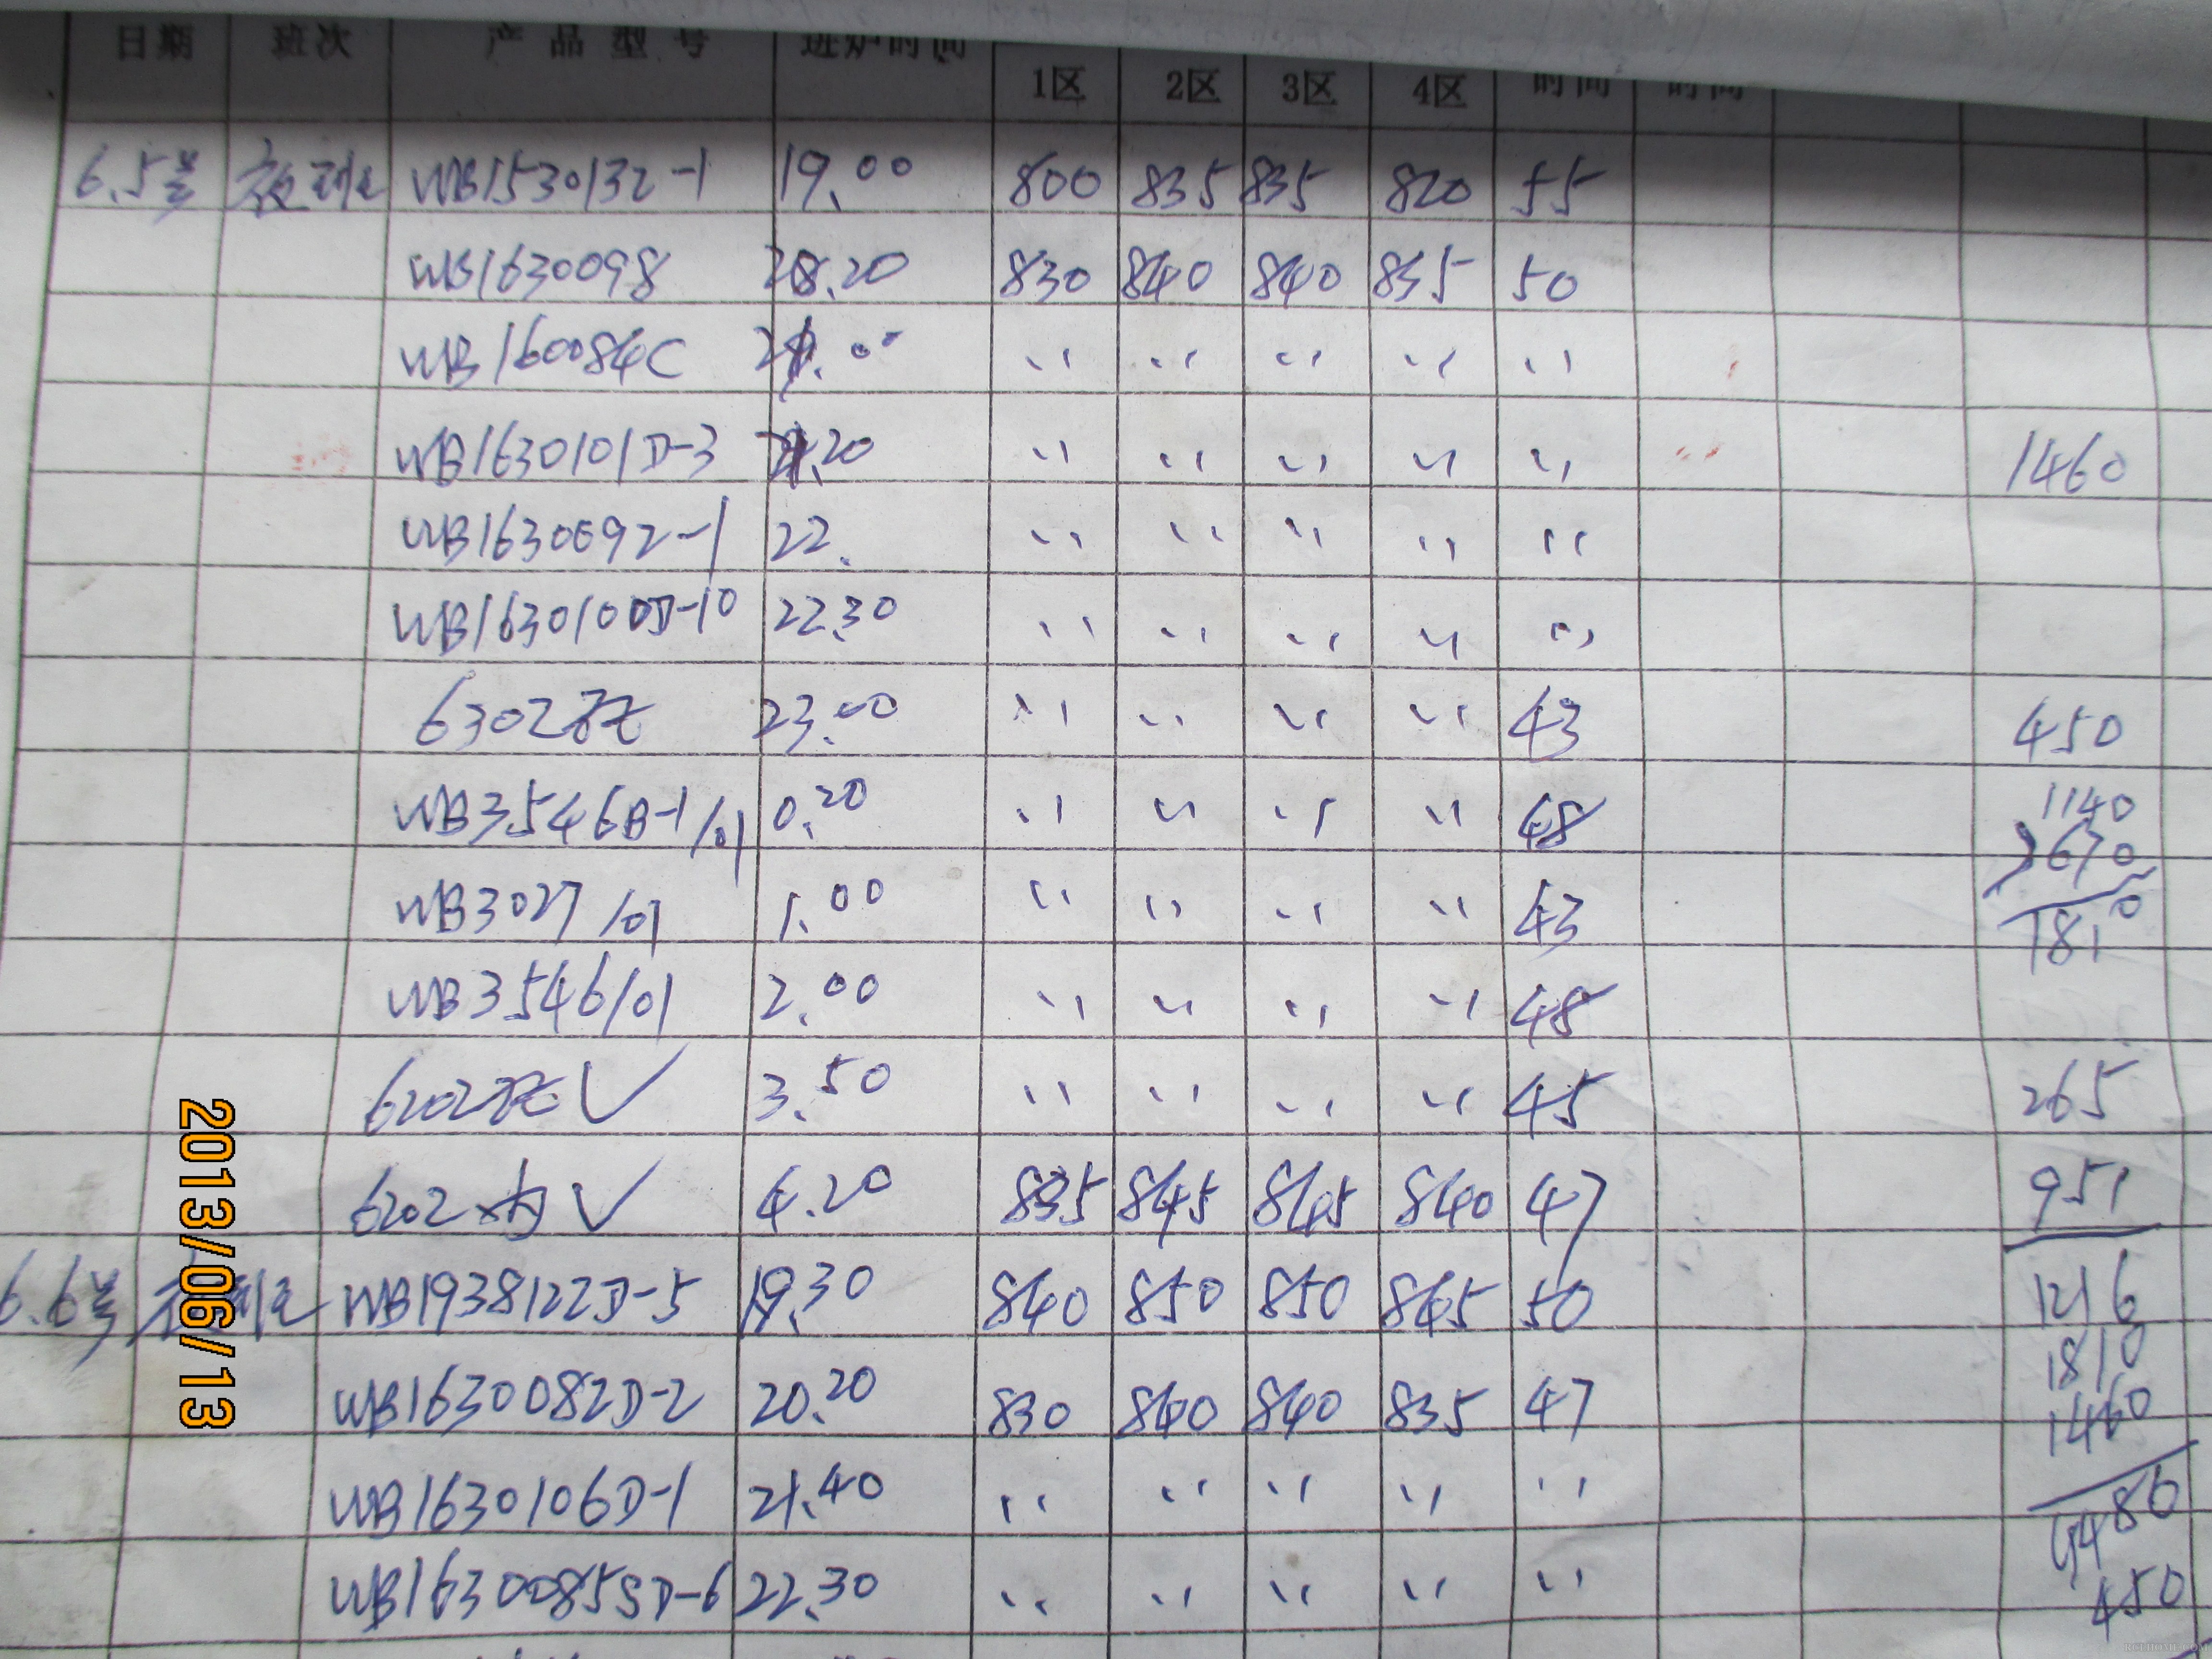 日期 班次 产品型号 进炉时间 1区 2区 3区 4区 时间 时间
6.5号 夜班 WB1530132-1 19.00 800 835 835 820 55
WB1630098 20.20 830 840 840 835 50
WB160084C 21.00 〃 〃 〃 〃 〃
WB1630101D-3 21.20 〃 〃 〃 〃 〃 1460
WB1630092-1 22. 〃 〃 〃 〃 〃
WB1630100D-10 22.30 〃 〃 〃 〃 〃
6302 23.00 〃 〃 〃 〃 43 450
WB3546B-1/01 0.20 〃 〃 〃 〃 48 1140
670
WB3027/01 1.00 〃 〃 〃 〃 43 1810
WB3546/01 2.00 〃 〃 〃 〃 48
6202 V 3.50 〃 〃 〃 〃 45 265
6202 V 4.20 835 845 845 840 47 951
6.6号 夜班 WB1938122D-5 19.30 840 850 850 845 50 1216
1810
WB1630082D-2 20.20 830 840 840 835 47 1460
WB1630106D-1 21.40 〃 〃 〃 〃 〃 4486
WB1630085SD-6 22.30 〃 〃 〃 〃 〃 450
2013/06/13